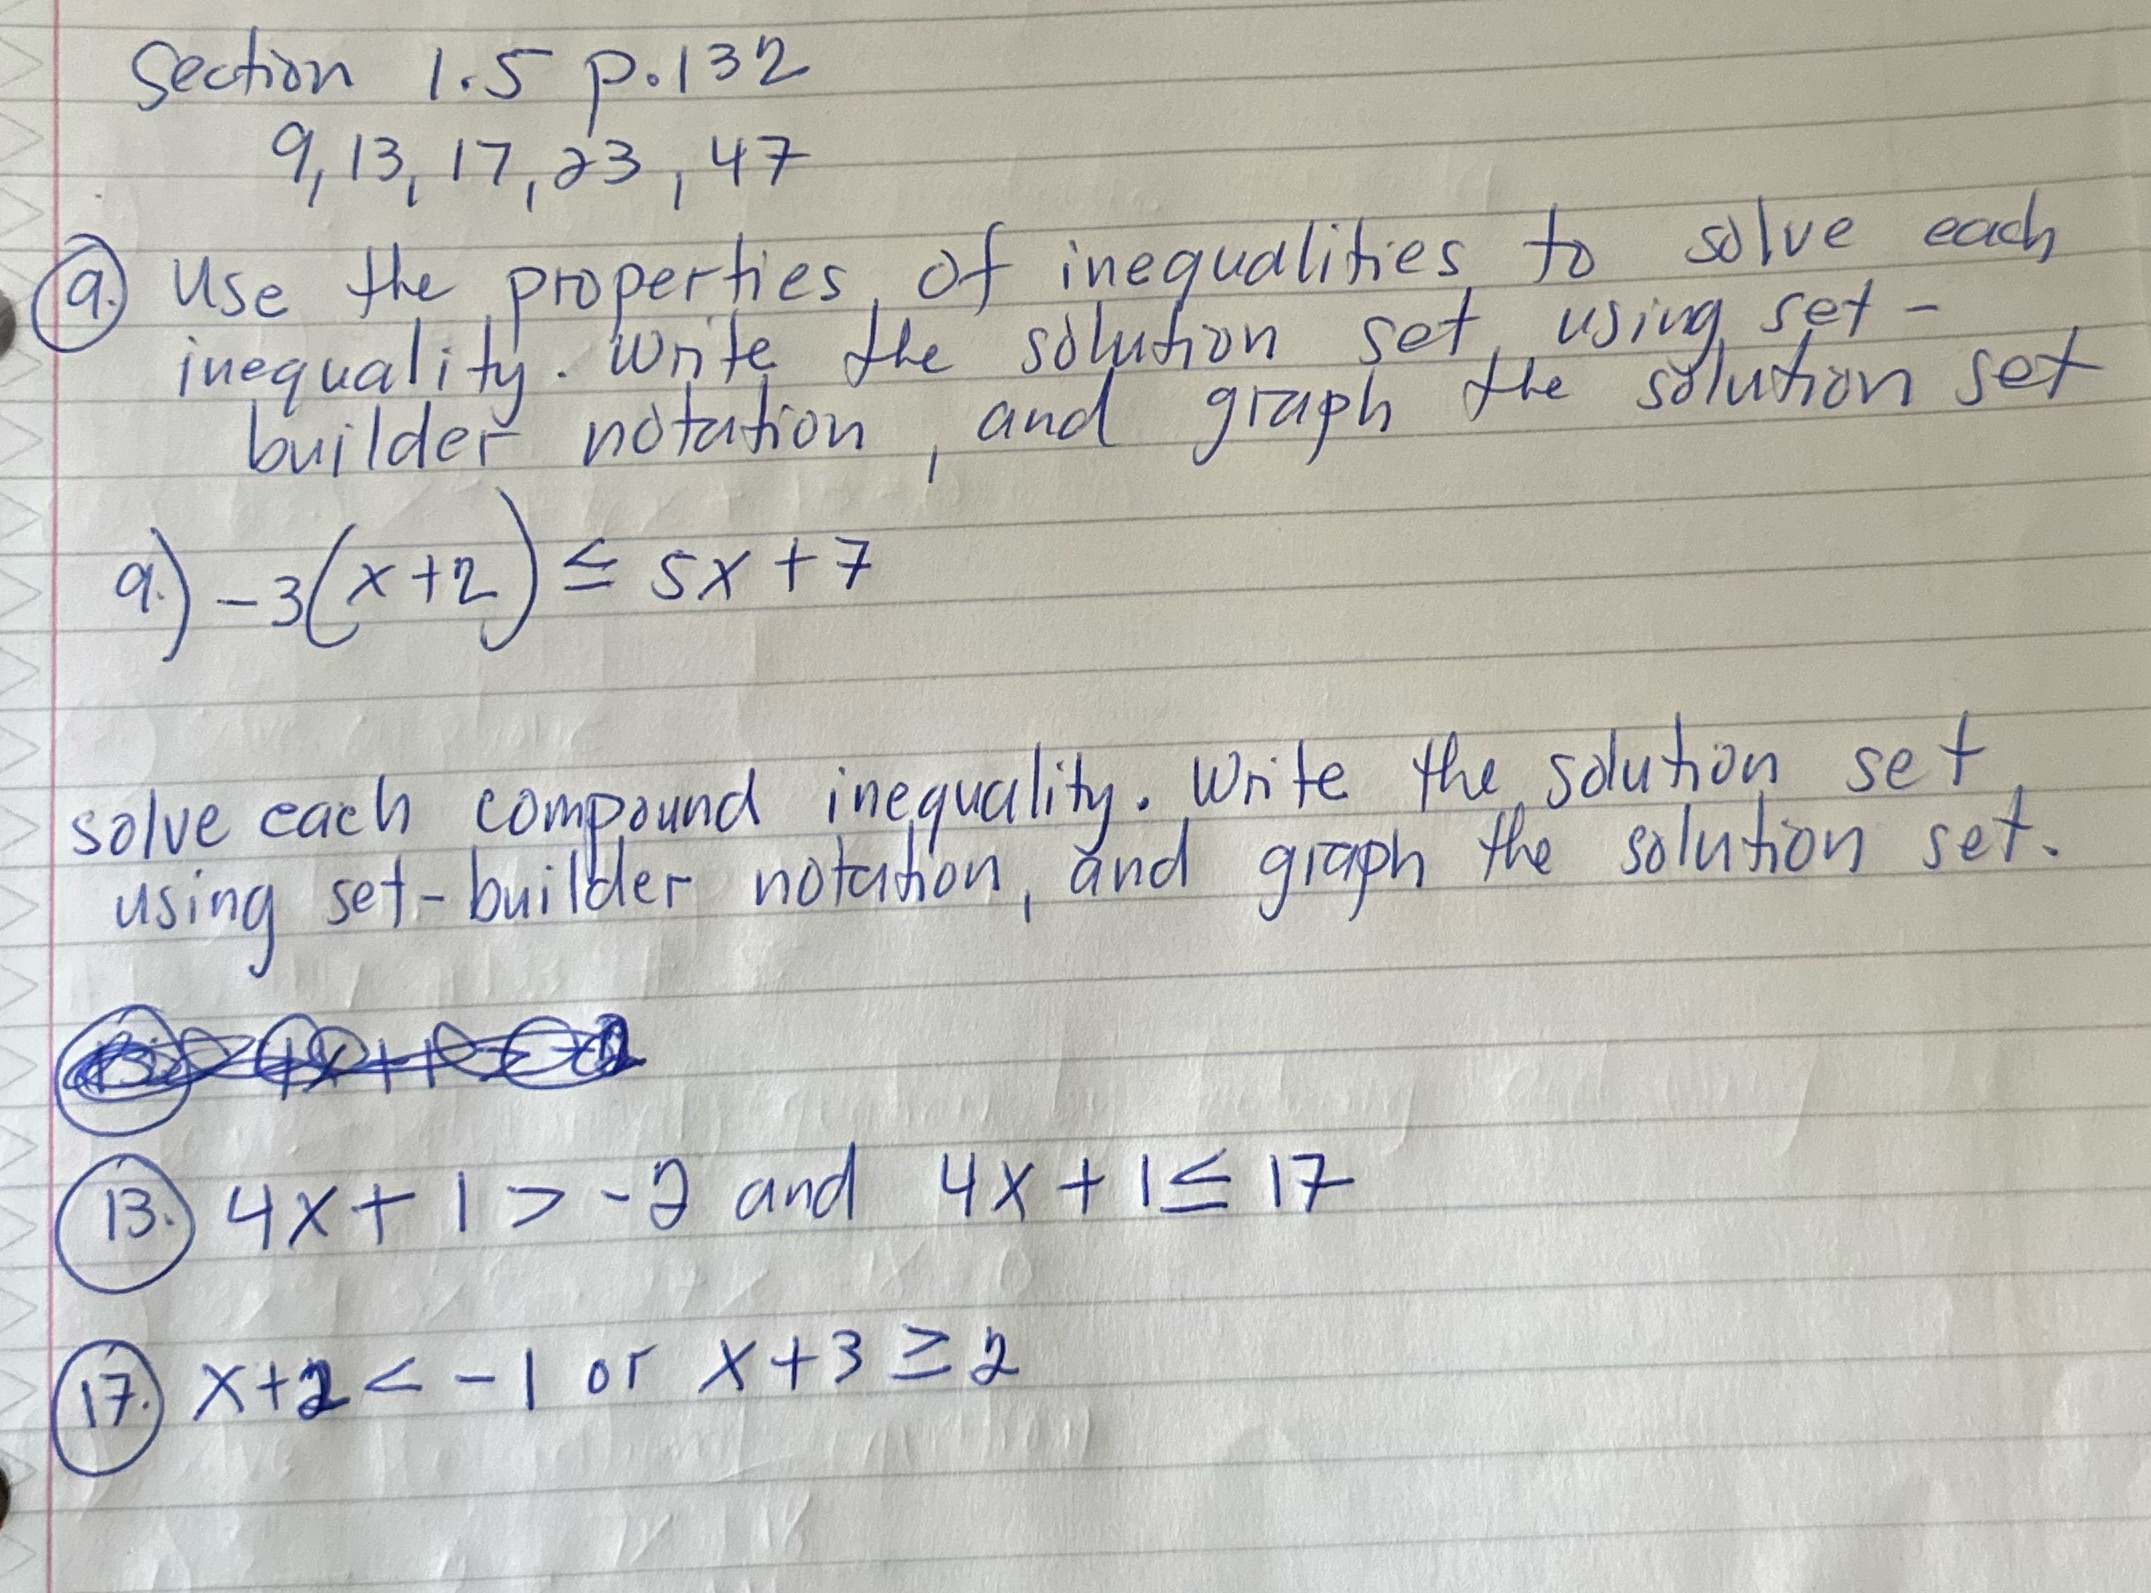 Section 1.5 p.132
9, 13, 17, 23, 47
9. Use the properties of inequalities to solve each
inequality. Write the solution set using set-
builder notation, and graph the solution set
9.) -3(x+2) ≤ 5x+7
solve each compound inequality. Write the solution set
using set-builder notation, and graph the solution set.
13. 4x+1 > -2 and 4x+1 ≤ 17
17. x+2 < -1 or x+3 ≥ 2